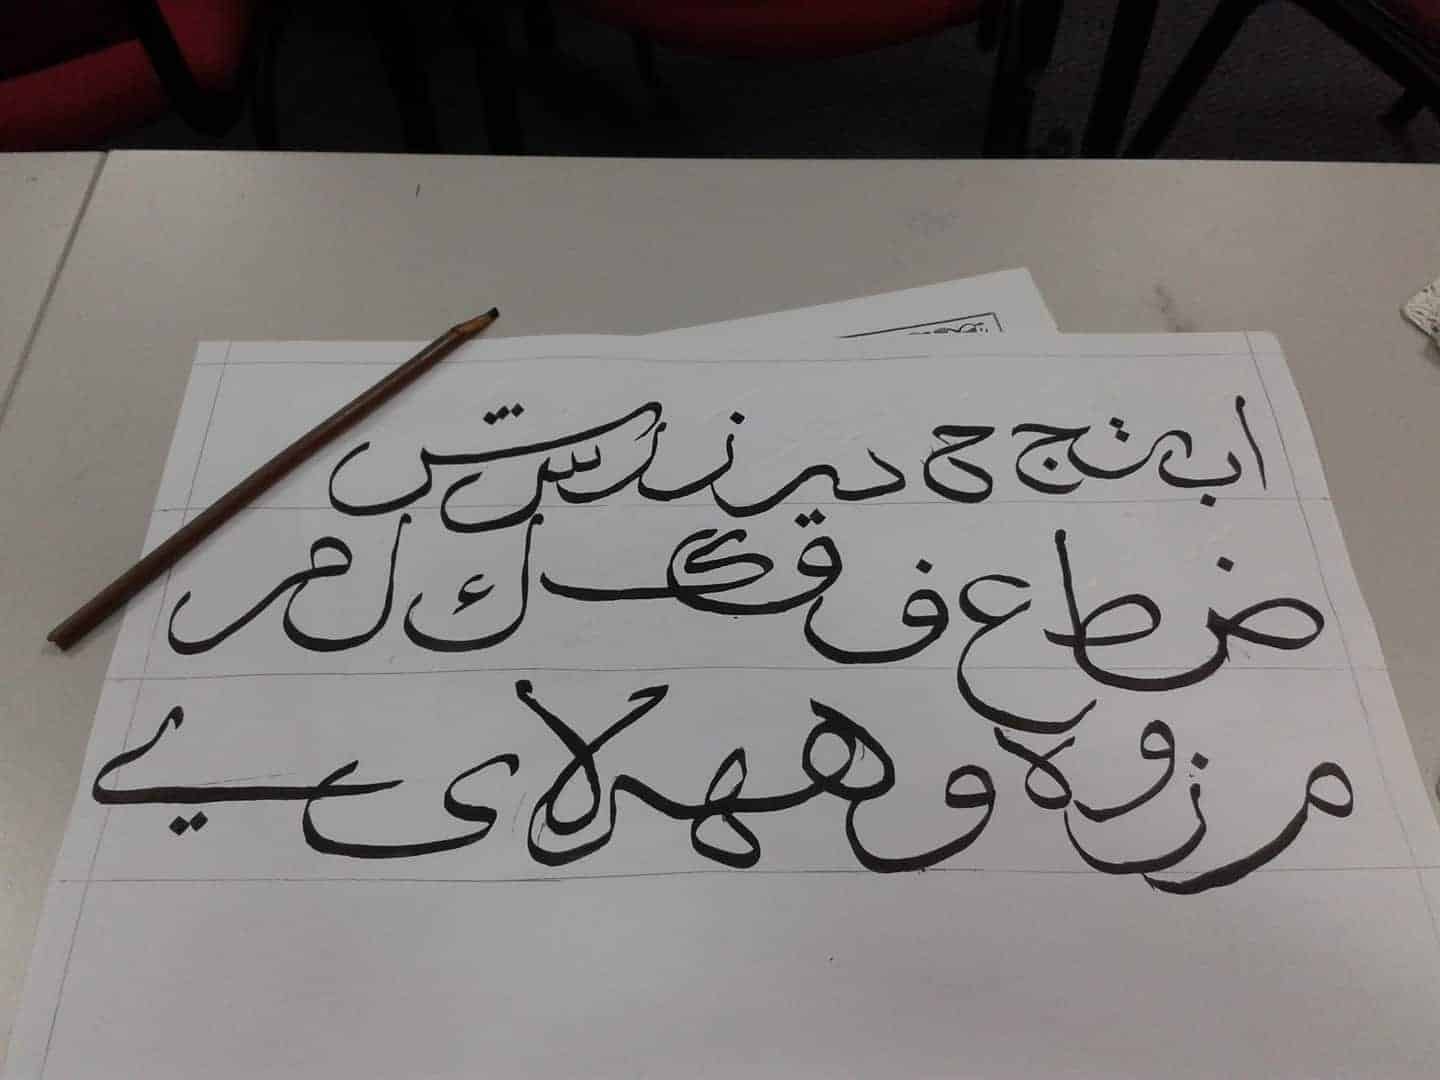 ا ب ت ج ح د ر ز ر س ش
ض ط ع ف ق ك ك ل م
م ز و لا و ه ه لا ى ي